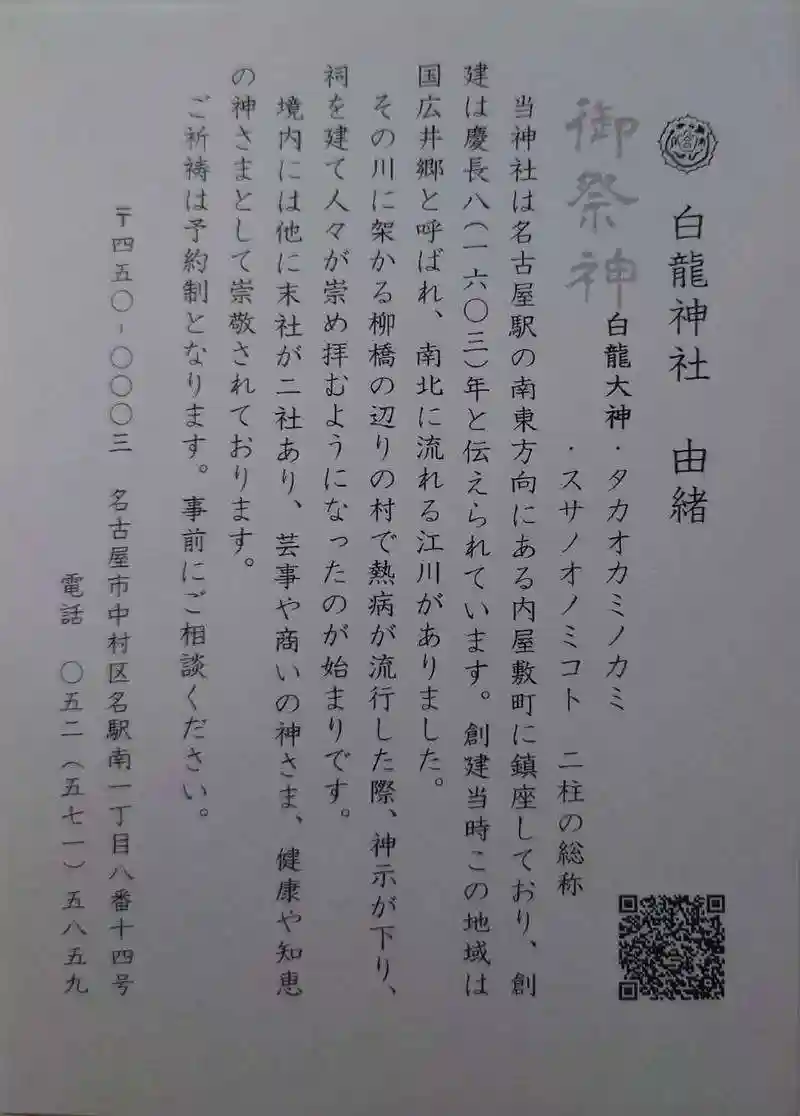 白龍神社　由緒
御祭神
白龍大神・タカオカミノカミ
・スサノオノミコト　二柱の総称
当神社は名古屋駅の南東方向にある内屋敷町に鎮座しており、創
建は慶長八(一六〇三)年と伝えられています。創建当時この地域は
国広井郷と呼ばれ、南北に流れる江川がありました。
その川に架かる柳橋の辺りの村で熱病が流行した際、神示が下り、
祠を建て人々が崇め拝むようになったのが始まりです。
境内には他に末社が二社あり、芸事や商いの神さま、健康や知恵
の神さまとして崇敬されております。
ご祈祷は予約制となります。事前にご相談ください。
〒四五〇-〇〇〇三　名古屋市中村区名駅南一丁目八番十四号
電話　〇五二(五七一)五八五九